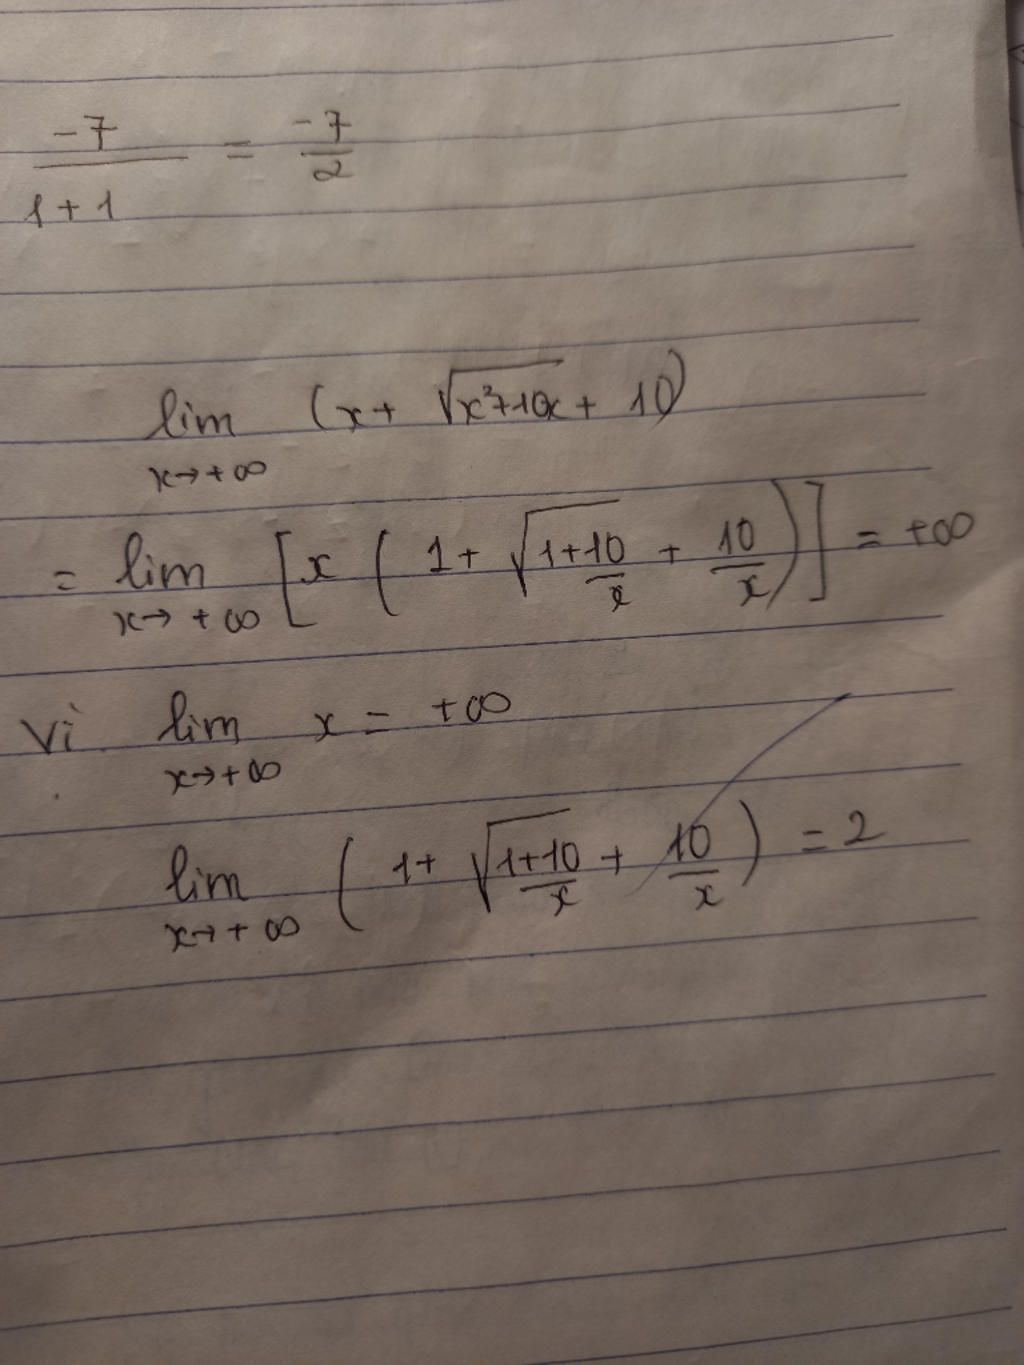 -7/(1+1) = -7/2
lim (x + √(x²+10x) + 10)
x→+∞
= lim [x (1 + √(1+10/x) + 10/x)] = +∞
x→+∞
Vì lim x = +∞
x→+∞
lim (1 + √(1+10/x) + 10/x) = 2
x→+∞